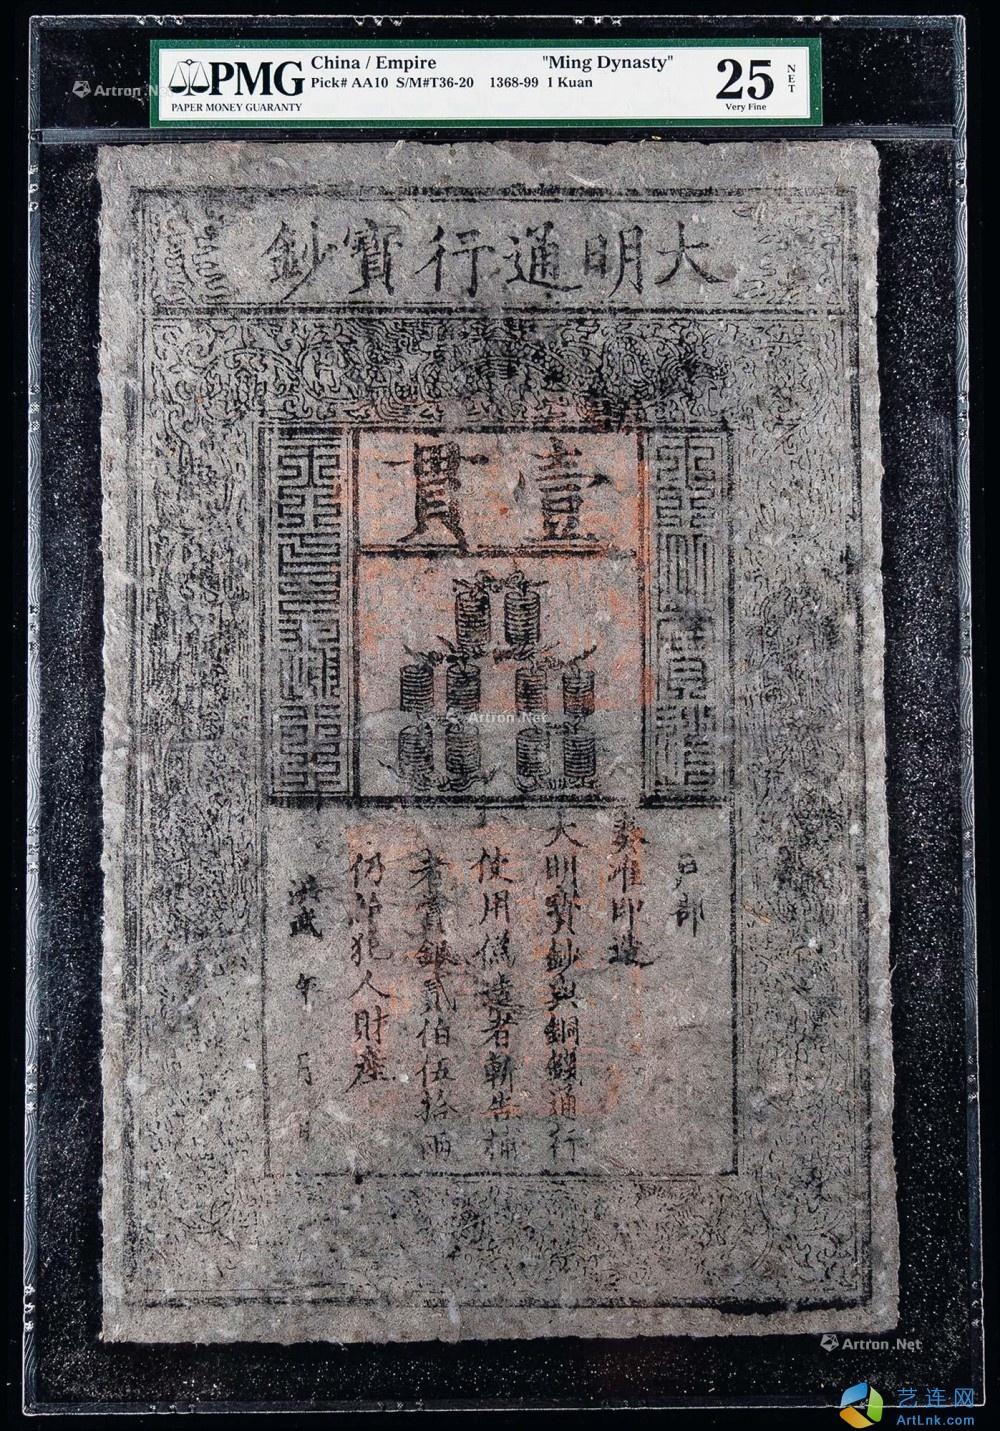 Artron.Net
PMG
PAPER MONEY GUARANTY
China / Empire "Ming Dynasty"
Pick# AA10 S/M#T36-20 1368-99 1 Kuan
25 NET
Very Fine
大明通行寶鈔
壹貫
戶部
奏准印造
大明寶鈔與銅錢通行
使用僞造者斬告捕
者賞銀貳伯伍拾兩
仍給犯人財產
洪武 年 月 日
Artron.Net
Artron.Net
艺连网
ArtLnk.com